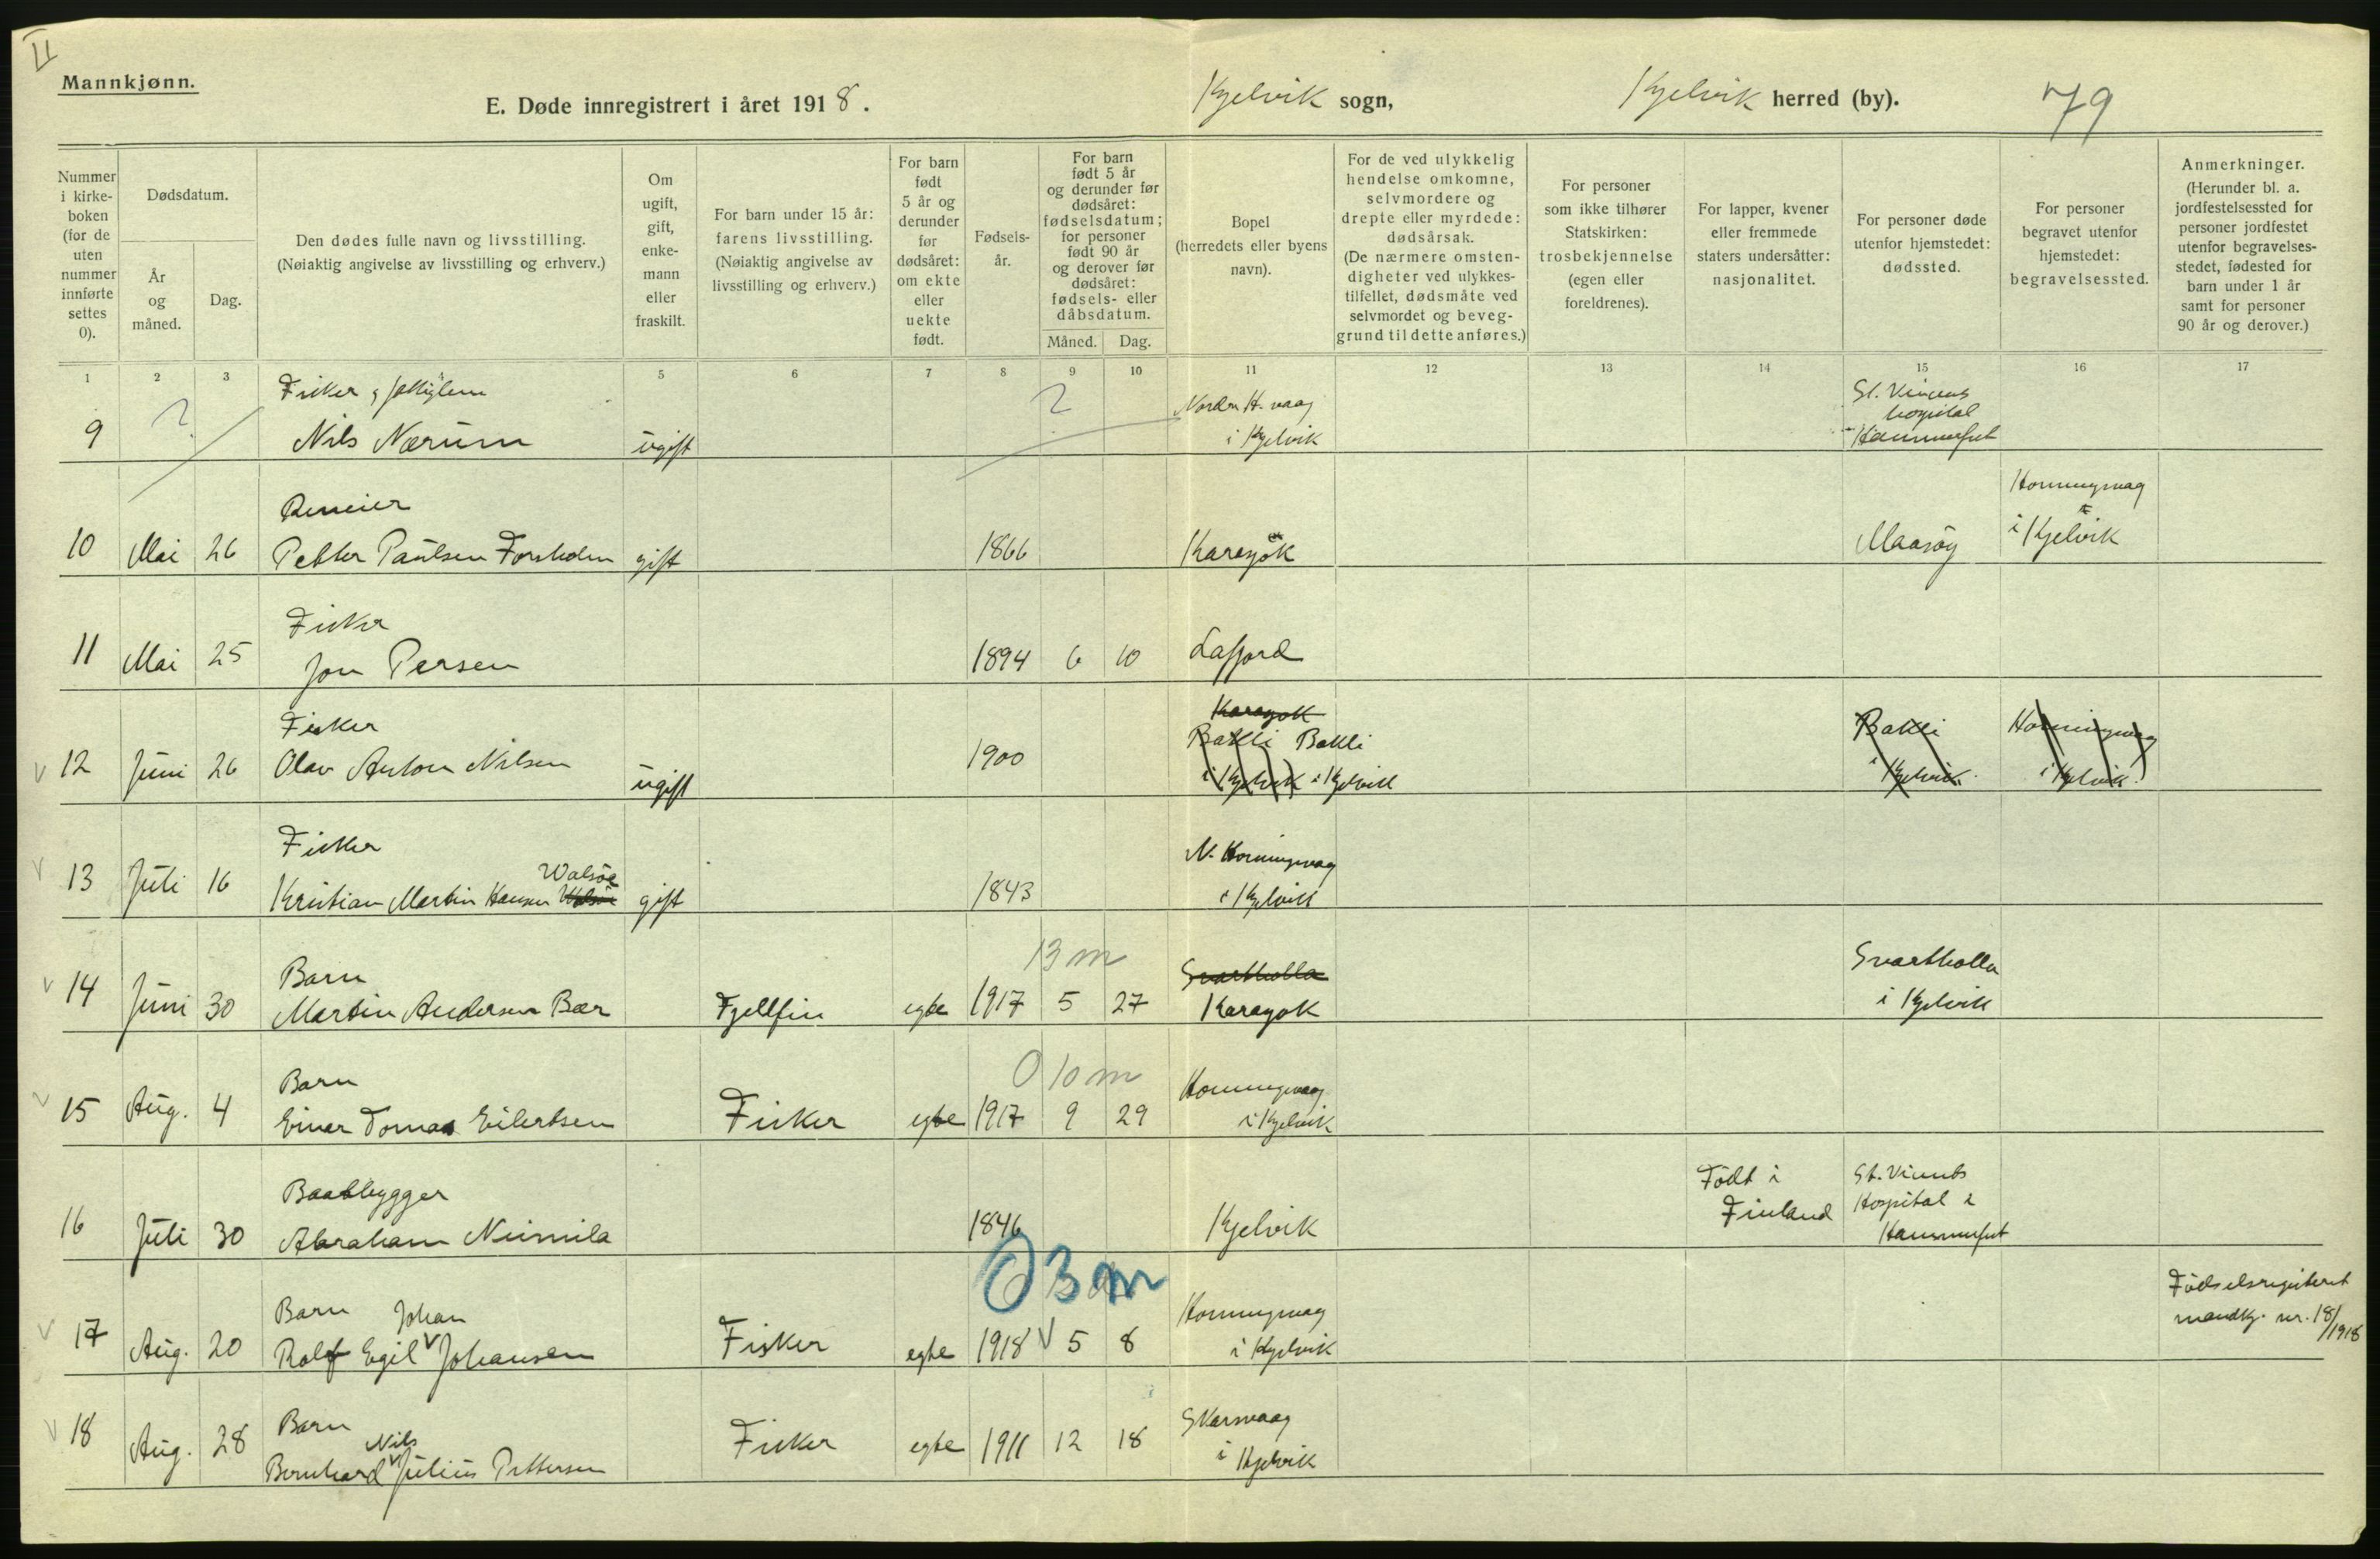 II
Mannkjønn.
E. Døde innregistrert i året 1918.
Kjelvik sogn,
Kjelvik herred (by).
79
Nummer i kirke-boken (for de uten nummer innførte settes 0).
Dødsdatum.
År og måned.
Dag.
Den dødes fulle navn og livsstilling.
(Nøiaktig angivelse av livsstilling og erhverv.)
Om ugift, gift, enke-mann eller fraskilt.
For barn under 15 år: farens livsstilling.
(Nøiaktig angivelse av livsstilling og erhverv.)
For barn født 5 år og derunder før dødsåret: om ekte eller uekte født.
Fødsels-år.
For barn født 5 år og derunder før dødsåret: fødselsdatum; for personer født 90 år og derover før dødsåret: fødsels- eller dåbsdatum.
Måned.
Dag.
Bopel
(herredets eller byens navn).
For de ved ulykkelig hendelse omkomne, selvmordere og drepte eller myrdede: dødsårsak.
(De nærmere omsten-digheter ved ulykkes-tilfellet, dødsmåte ved selvmordet og beveg-grund til dette anføres.)
For personer som ikke tilhører Statskirken: trosbekjennelse (egen eller foreldrenes).
For lapper, kvener eller fremmede staters undersåtter: nasjonalitet.
For personer døde utenfor hjemstedet: dødssted.
For personer begravet utenfor hjemstedet: begravelsessted.
Anmerkninger.
(Herunder bl. a. jordfestelsessted for personer jordfestet utenfor begravelses-stedet, fødested for barn under 1 år samt for personer 90 år og derover.)
1 2 3 5 6 7 8 9 10 11 12 13 14 15 16 17
Fisker
? ? Nordre H. vaag St. Vincents hospital
9 Nils Nærum ugift i Kjelvik Hammerfest
Honningsvaag
10 Mai 26 Petter Paulsen Forsholm gift 1866 Karasjok Maasøy i Kjelvik
Fisker
11 Mai 25 Jon Persen 1894 6 10 Lafjord
Karasjok
Fisker Bakli Bakli Bakli Honningsvaag
v 12 Juni 26 Olav Anton Nilsen ugift 1900 i Kjelvik i Kjelvik i Kjelvik. i Kjelvik.
Fisker N. Honningsvaag
Walsøe
v 13 Juli 16 Kristian Martin Hansen Walsøe gift 1843 i Kjelvik
13 m
Barn Svartholla Svartholla
v 14 Juni 30 Martin Andersen Bær Fjellfin egte 1917 5 27 Karasjok i Kjelvik
0 10 m
Barn Honningsvaag
v 15 Aug. 4 Einar Tomas Eilertsen Fisker egte 1917 9 29 i Kjelvik
Baatbygger Født i St. Vincents Hospital i
16 Juli 30 Abraham Niemila 1846 Kjelvik Finland Hammerfest
0 3 m
Barn Johan Honningsvaag Fødselsregisteret
v 17 Aug. 20 Rolf Egil v Johansen Fisker egte 1918 v 5 8 i Kjelvik mandkj. nr. 18/1918
Barn Nils Skarsvaag
v 18 Aug. 28 Bernhard v Julius Pettersen Fisker egte 1911 12 18 i Kjelvik